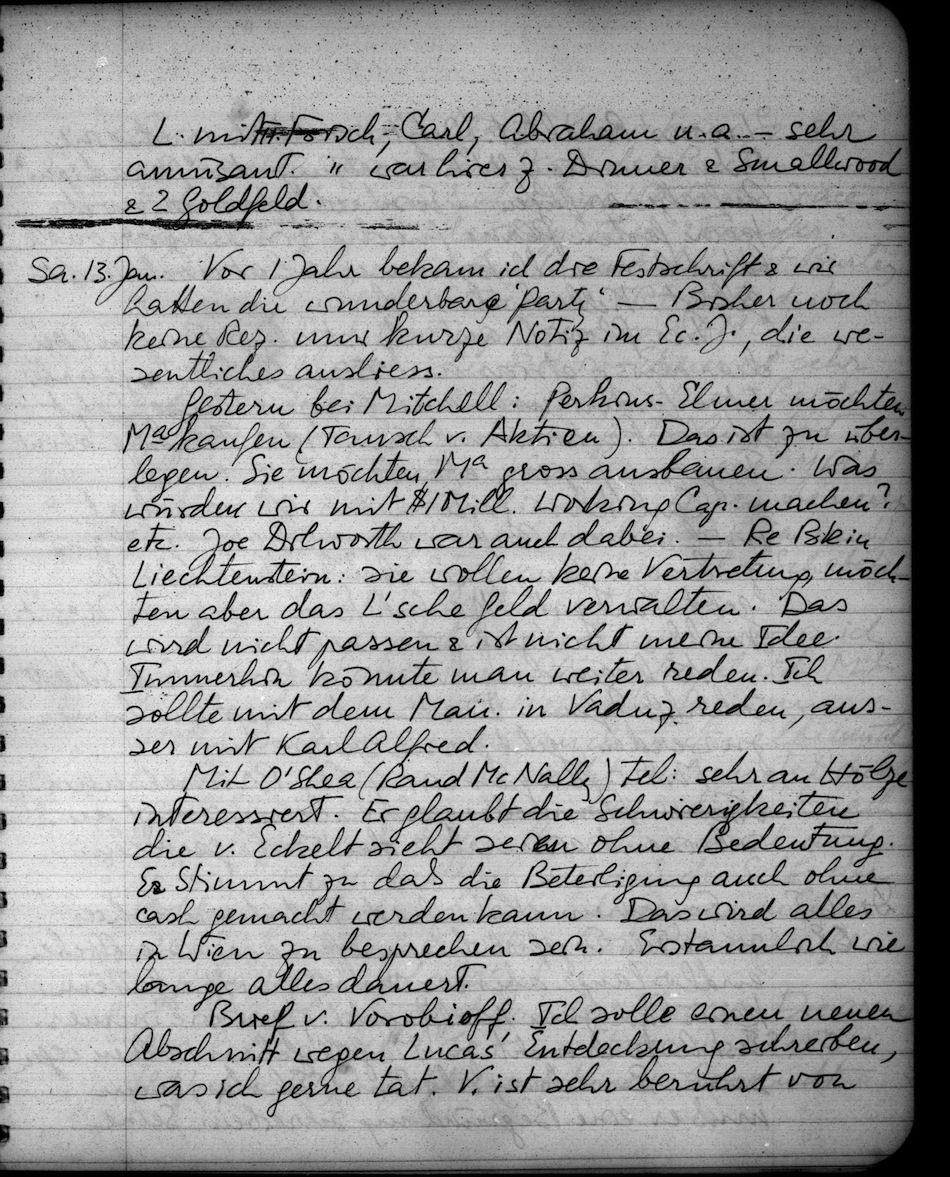 L. mit Forsch, Carl, Abraham u.a. – sehr
amüsant. " war hier z. Dinner & Smallwood
& 2 Goldfeld.
Sa. 13. Jan. Vor 1 Jahr bekam ich die Festschrift & wir
hatten die wunderbare 'party' — Bisher noch
keine Rez. nur kurze Notiz im Ec. J., die we-
sentliches ausliess.
Gestern bei Mitchell: Perkins-Elmer möchten
Ma kaufen (Tausch v. Aktien). Das ist zu über-
legen. Sie möchten Ma gross ausbauen. Was
würden wir mit $1 Mill. working Cap. machen?
etc. Joe Dilworth war auch dabei. — Re Bk in
Liechtenstein: sie wollen keine Vertretung, möch-
ten aber das L'sche Geld verwalten. Das
wird nicht passen & ist nicht meine Idee.
Immerhin könnte man weiter reden. Ich
sollte mit dem Man. in Vaduz reden, aus-
ser mit Karl Alfred.
Mit O'Shea (Rand McNally) tel: sehr an Hölze
interessiert. Er glaubt die Schwierigkeiten
die v. Eckelt sieht seien ohne Bedeutung.
Er stimmt zu daß die Beteiligung auch ohne
cash gemacht werden kann. Das wird alles
in Wien zu besprechen sein. Erstaunlich wie
lange alles dauert.
Brief v. Vorobieff. Ich solle einen neuen
Abschnitt wegen Lucas' Entdeckung schreiben,
was ich gerne tat. V. ist sehr berührt von